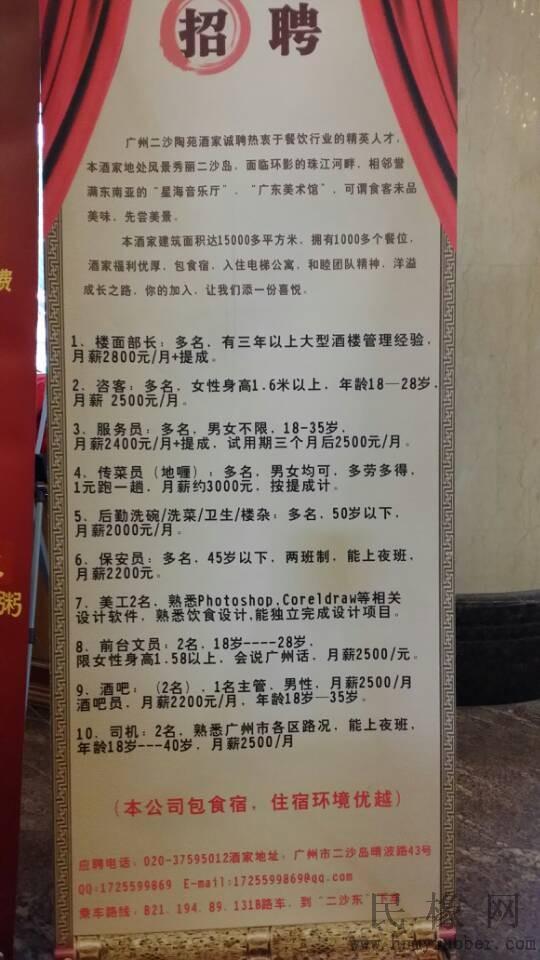 招聘
广州二沙陶苑酒家诚聘热衷于餐饮行业的精英人才,
本酒家地处风景秀丽二沙岛, 面临环影的珠江河畔, 相邻誉
满东南亚的"星海音乐厅", "广东美术馆", 可谓食客未品
美味, 先尝美景.
本酒家建筑面积达15000多平方米, 拥有1000多个餐位,
酒家福利优厚, 包食宿, 入住电梯公寓, 和睦团队精神, 洋溢
成长之路, 你的加入, 让我们添一份喜悦.
1、楼面部长: 多名, 有三年以上大型酒楼管理经验,
月薪2800元/月+提成。
2、咨客: 多名, 女性身高1.6米以上, 年龄18—28岁,
月薪 2500元/月。
3、服务员: 多名, 男女不限, 18-35岁,
月薪2400元/月+提成, 试用期三个月后2500元/月。
4、传菜员 (地喱): 多名, 男女均可, 多劳多得,
1元跑一趟, 月薪约3000元, 按提成计。
5、后勤洗碗/洗菜/卫生/楼杂: 多名, 50岁以下,
月薪2000元/月。
6、保安员: 多名, 45岁以下, 两班制, 能上夜班,
月薪2200元。
7、美工2名, 熟悉Photoshop,Coreldraw等相关
设计软件, 熟悉饮食设计,能独立完成设计项目。
8、前台文员: 2名, 18岁----28岁,
限女性身高1.58以上, 会说广州话, 月薪2500/元。
9、酒吧: (2名), 1名主管, 男性, 月薪2500/月
酒吧员, 月薪2200元/月, 年龄18岁—35岁。
10、司机: 2名, 熟悉广州市各区路况, 能上夜班,
年龄18岁---40岁, 月薪2500/月
(本公司包食宿, 住宿环境优越)
应聘电话: 020-37595012酒家地址: 广州市二沙岛晴波路43号
QQ:1725599869 E-mail:1725599869@qq.com
乘车路线: B21, 194, 89, 131B路车, 到"二沙东"下车
费
粥
民橡网